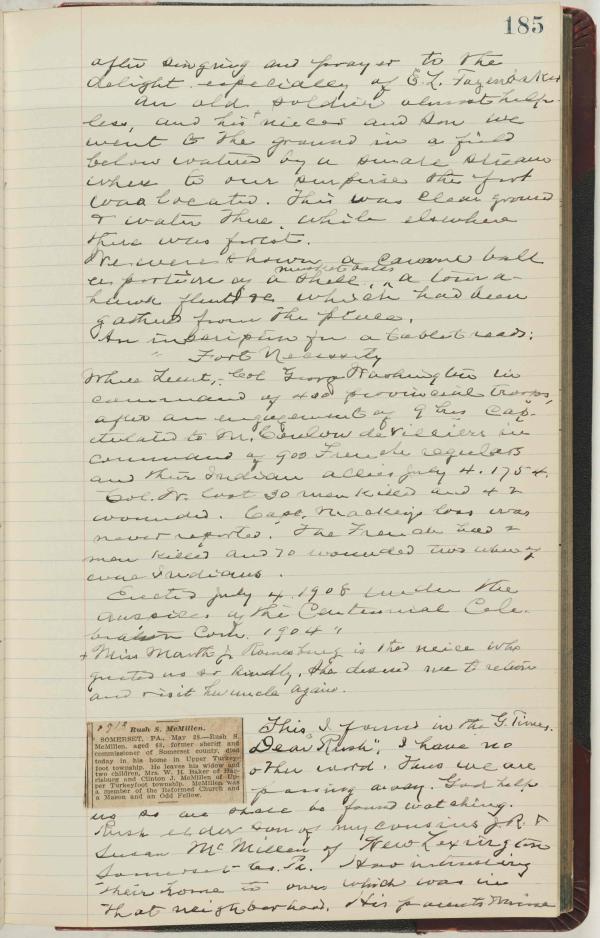 185
after singing and prayer to the
delight especially of E. L. Fazenbaker
An old soldier almost help-
less, and his + nieces and son we
went to the ground in a field
below watered by a small stream
when to our surprise the fort
was located. This was clear ground
& water there while elsewhere
there was forest.
We were shown a cannon ball
a portion of a shell, musket balls, a toma-
hawk flint &c. which had been
gathered from the place.
An inscription for a tablet reads:
" Fort Necessity
Where Lieut, Col George Washington in
command of 400 provincial troops,
after an engagement of 9 hrs cap-
itulated to M. Coulon de Villiers in
command of 900 French regulars
and their Indian allies July 4. 1754.
Col. W. lost 30 men killed and 42
wounded. Capt. Mackeys loss was
never reported. The French had 2
men killed and 70 wounded two whereof
were Indians.
Erected July 4 1908 under the
auspices of the Centennial Cele-
bration Com. 1904"
+ Miss Martha J. is the neice who
greeted us so kindly. She desired me to return
and visit her uncle again.
1912
Rush S. McMillen.
SOMERSET, PA., May 28.—Rush S.
McMillen, aged 48, former sheriff and
commissioner of Somerset county, died
today in his home in Upper Turkey-
foot township. He leaves his widow and
two children, Mrs. W. H. Baker of Har-
risburg and Clinton J. McMillen of Up-
per Turkeyfoot township. McMillen was
a member of the Reformed Church and
a Mason and an Odd Fellow.
This I found in the G. Times.
Dear "Rush", I have no
other word. Thus we are
passing away. God help
us so we shall be found watching.
Rush elder son of my cousins J. R. &
Susan McMillen of New Lexington
Somerset Co. Pa. How interesting
their home to ours which was in
that neighborhood. His parents